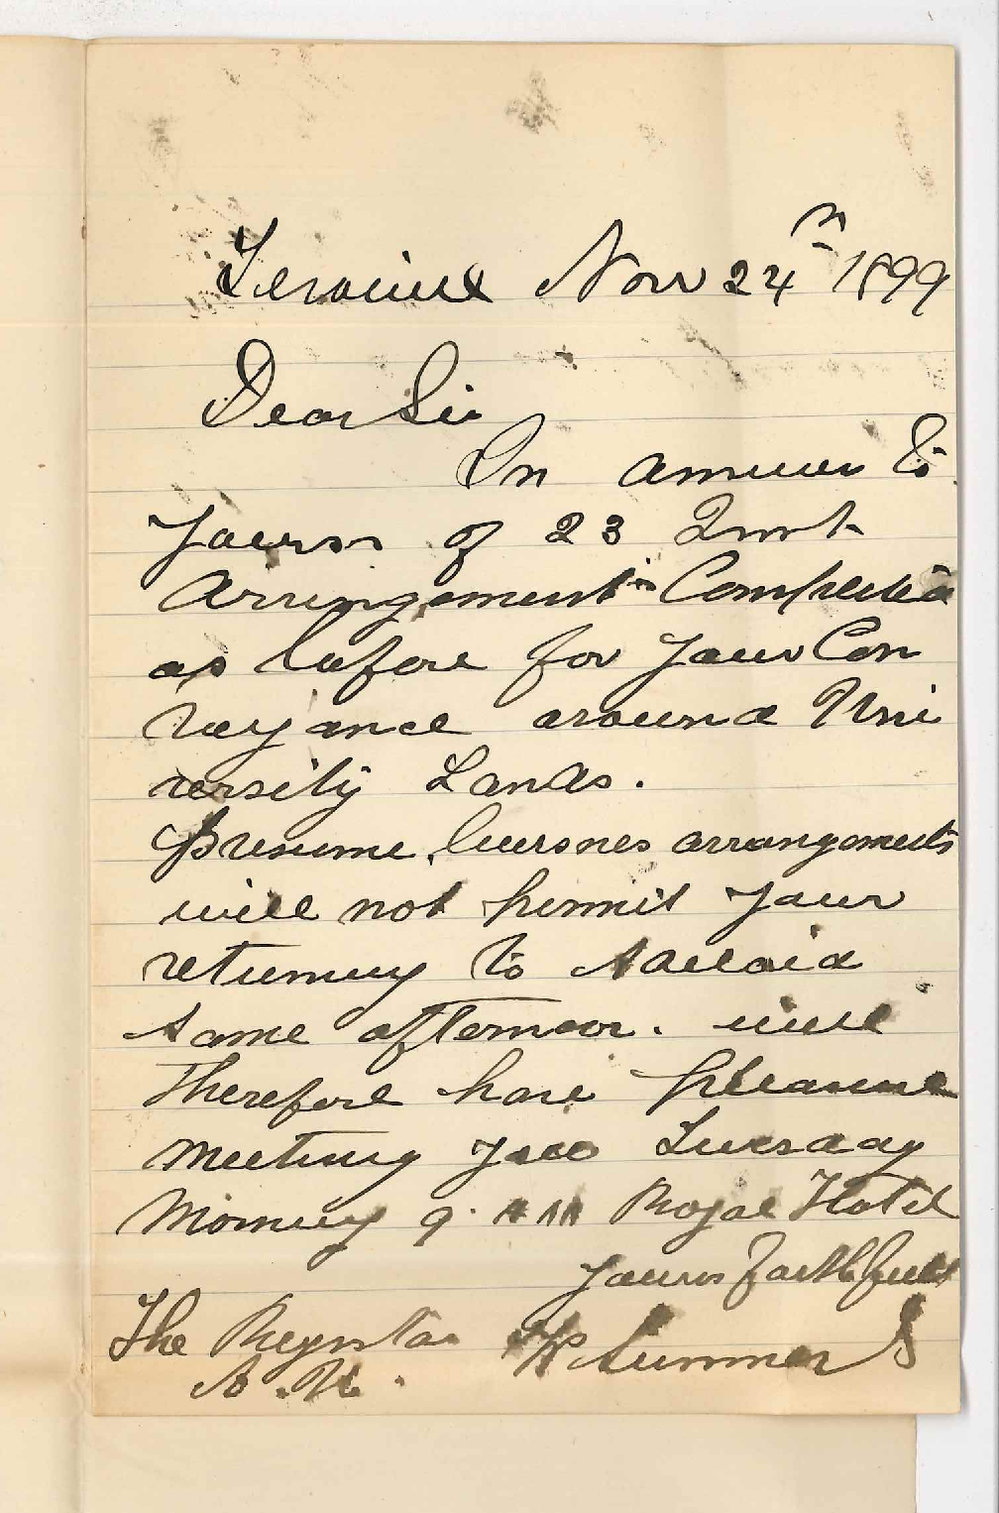 Terowie Nov 24th 1899
Dear Sir
In answer to
Yours of 23 Inst
Arringements Completed
as before for your Con
veyance around Uni
versity Lands.
Presume business arrangements
will not permit your
returning to Adelaid
same afternoon. will
therefore have pleasure
meeting you Tuesday
Morning 9. AM Royal Hotel
Yours faithfully
The Registrar
Sumner
A.U.